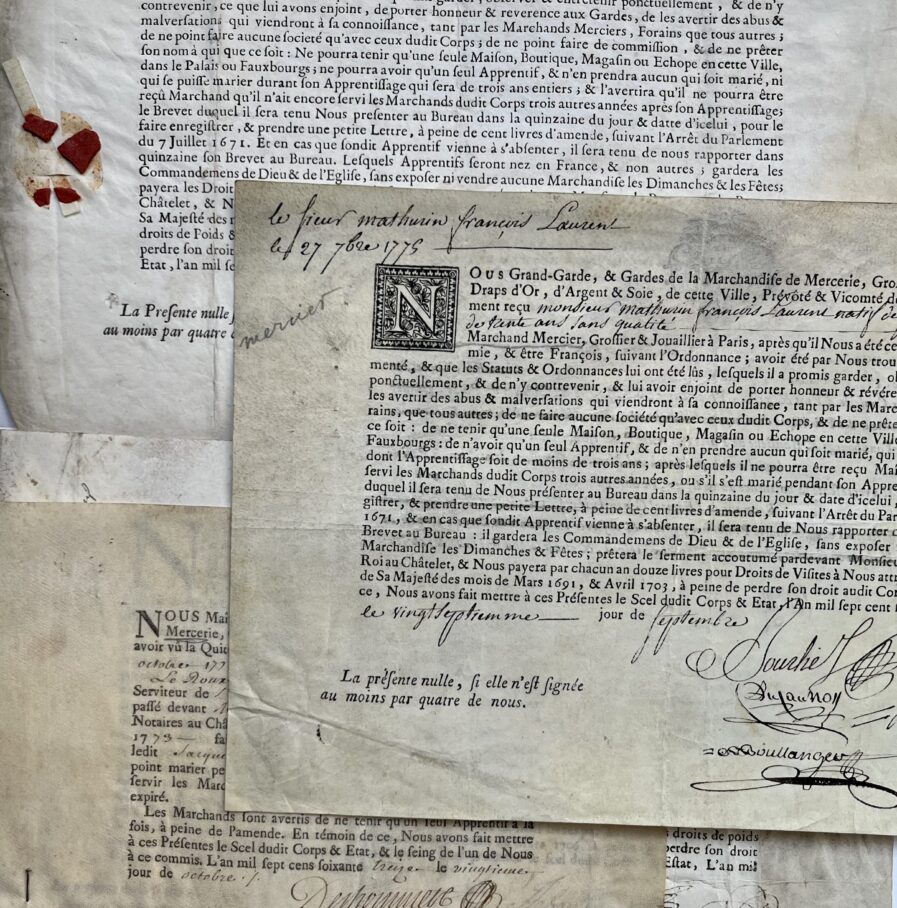 contrevenir, ce que lui avons enjoint, de porter honneur & reverence aux Gardes, de les avertir des abus &
malversations qui viendront à sa connoissance, tant par les Marchands Merciers, Forains que tous autres;
de ne point faire aucune societé qu'avec ceux dudit Corps; de ne point faire de commission, & de ne prêter
son nom à qui que ce soit: Ne pourra tenir qu'une seule Maison, Boutique, Magasin ou Echope en cette Ville,
dans le Palais ou Fauxbourgs; ne pourra avoir qu'un seul Apprentif, & n'en prendra aucun qui soit marié, ni
qui se puisse marier durant son Apprentissage qui sera de trois ans entiers; & l'avertira qu'il ne pourra être
reçû Marchand qu'il n'ait encore servi les Marchands dudit Corps trois autres années après son Apprentissage
le Brevet duquel il sera tenu Nous presenter au Bureau dans la quinzaine du jour & datte d'icelui, pour le
faire enregistrer, & prendre une petite Lettre, à peine de cent livres d'amende, suivant l'Arrêt du Parlement
du 7 Juillet 1671. Et en cas que sondit Apprentif vienne à s'absenter, il sera tenu de nous rapporter dans
quinzaine son Brevet au Bureau. Lesquels Apprentifs seront nez en France, & non autres; gardera les
Commandemens de Dieu & de l'Eglise, sans exposer ni vendre aucune Marchandise les Dimanches & les Fêtes;
payera les Droit
Châtelet, & N
Sa Majesté des
droits de Poids &
perdre son droit
Etat, l'an mil se
La Presente nulle
au moins par quatre
le sieur mathurin françois Laurent
le 27 7bre 1775
mercier
NOUS Grand-Garde, & Gardes de la Marchandise de Mercerie, Gro
Draps d'Or, d'Argent & Soie, de cette Ville, Prévoté & Vicomté de
ment reçu monsieur mathurin françois Laurent natif de
de trente ans sans qualité
Marchand Mercier, Grossier & Jouaillier à Paris, après qu'il Nous a été ce
mie, & être François, suivant l'Ordonnance; avoir été par Nous trou
menté, & que les Statuts & Ordonnances lui ont été lûs, lesquels il a promis garder, o
ponctuellement, & de n'y contrevenir, & lui avoir enjoint de porter honneur & révére
les avertir des abus & malversations qui viendront à sa connoissance, tant par les Marc
rains, que tous autres; de ne faire aucune société qu'avec ceux dudit Corps, & de ne prête
ce soit: de ne tenir qu'une seule Maison, Boutique, Magasin ou Echope en cette Ville
Fauxbourgs: de n'avoir qu'un seul Apprentif, & de n'en prendre aucun qui soit marié, qui
dont l'Apprentissage soit de moins de trois ans; après lesquels il ne pourra être reçu Ma
servi les Marchands dudit Corps trois autres années, ou s'il s'est marié pendant son Appre
duquel il sera tenu de Nous présenter au Bureau dans la quinzaine du jour & date d'icelui,
gistrer, & prendre une petite Lettre, à peine de cent livres d'amende, suivant l'Arrêt du Par
1671, & en cas que sondit Apprentif vienne à s'absenter, il sera tenu de Nous rapporter d
Brevet au Bureau: il gardera les Commandemens de Dieu & de l'Eglise, sans exposer
Marchandise les Dimanches & Fêtes; prêtera le serment accoutumé pardevant Monsieu
Roi au Châtelet, & Nous payera par chacun an douze livres pour Droits de Visites à Nous attr
de Sa Majesté des mois de Mars 1691, & Avril 1703, à peine de perdre son droit audit Cor
ce, Nous avons fait mettre à ces Présentes le Scel dudit Corps & Etat, l'An mil sept cent
le vingt septiemme jour de septembre
La présente nulle, si elle n'est signée
au moins par quatre de nous.
Boullanger
NOUS Maî
Mercerie,
avoir vû la Quit
octobre 177
Le Roux
Serviteur de
passé devant
Notaires au Châ
1773 fa
ledit Jacque
point marier pe
servir les Marc
expiré.
Les Marchands sont avertis de ne tenir qu'un seul Apprentif à la
fois, à peine de l'amende. En témoin de ce, Nous avons fait mettre
à ces Présentes le Scel dudit Corps & Etat, & le seing de l'un de Nous
à ce commis. L'an mil sept cens soixante treize le vingtieme
jour de octobre
droits de poids
perdre son droit
Estat, L'an mil